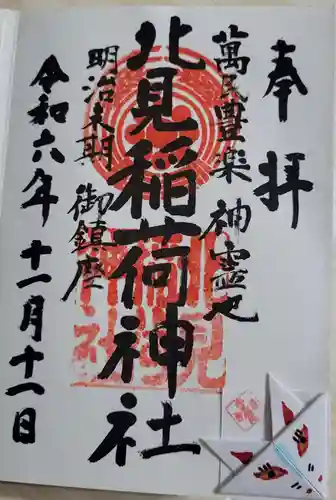 奉拝
萬民豊楽 神霊也
北見稲荷神社
明治末期 御鎮座
令和六年十一月十一日